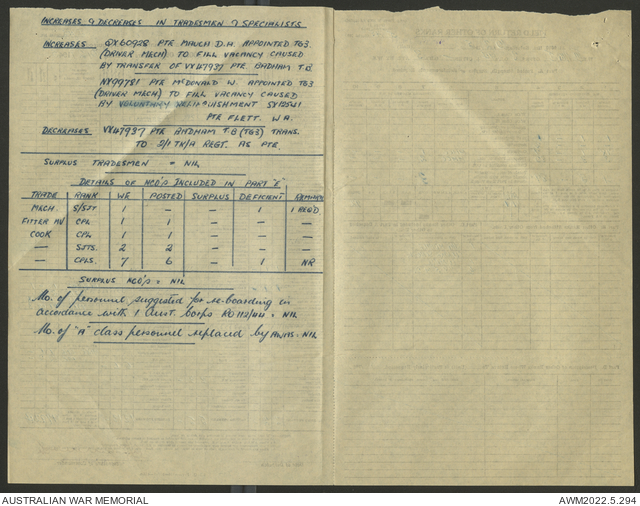 INCREASES & DECREASES IN TRADESMEN & SPECIALISTS
INCREASES QX60928 PTE MAUCH D.H. APPOINTED TG3.
(DRIVER MECH) TO FILL VACANCY CAUSED
BY TRANSFER OF VX47937 PTE. BADHAM T.B
NX99781 PTE McDONALD W. APPOINTED TG3
(DRIVER MECH) TO FILL VACANCY CAUSED
BY VOLUNTARY RELINQUISHMENT SX12541
PTE FLETT. W.A.
DECREASES VX47937 PTE BADHAM T.B (TG3) TRANS.
TO 2/1 TK/A REGT. AS PTE.
SURPLUS TRADESMEN = NIL
DETAILS OF NCO'S INCLUDED IN PART "E"
TRADE RANK WE POSTED SURPLUS DEFICIENT REMARKS
MECH S/SJT 1 — — 1 1 REQ'D
FITTER MV CPL 1 1 — — —
COOK CPL 1 1 — — —
— SJTS. 2 2 — — —
— CPLS. 7 6 — 1 NR
SURPLUS NCO'S = NIL
No. of personnel suggested for re-boarding in
accordance with 1 Aust. Corps RO 112/44 = NIL
No. of "A" class personnel replaced by AWAS = NIL
AUSTRALIAN WAR MEMORIAL
AWM2022.5.294